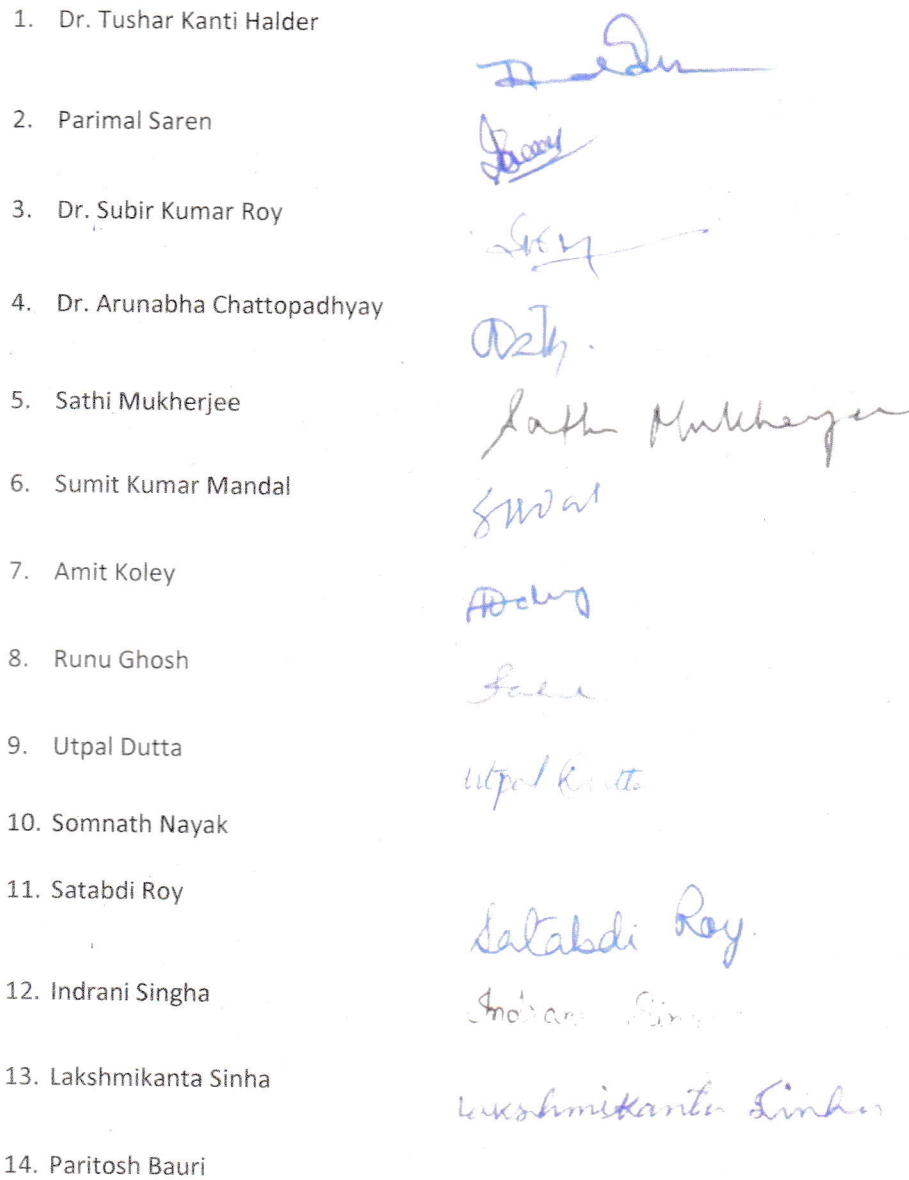 1. Dr. Tushar Kanti Halder
2. Parimal Saren
3. Dr. Subir Kumar Roy
4. Dr. Arunabha Chattopadhyay
5. Sathi Mukherjee Sathi Mukherjee
6. Sumit Kumar Mandal
7. Amit Koley
8. Runu Ghosh
9. Utpal Dutta Utpal Dutta
10. Somnath Nayak
11. Satabdi Roy Satabdi Roy.
12. Indrani Singha
13. Lakshmikanta Sinha Lakshmikanta Sinha
14. Paritosh Bauri